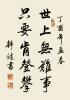 世上無難事
只要肯登攀
丁酉年孟春
耕德書